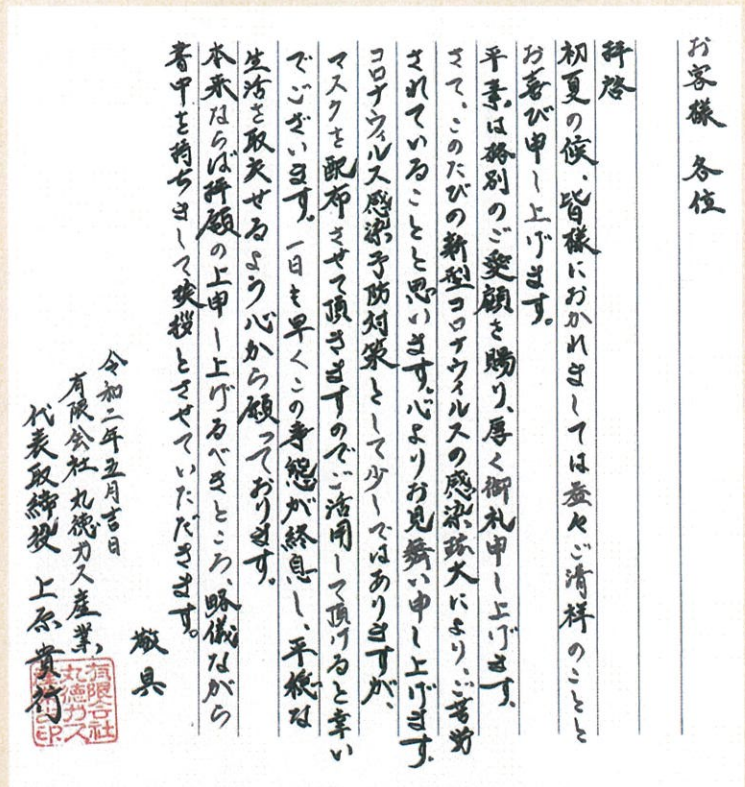 お客様 各位
拝啓
初夏の候、皆様におかれましては益々ご清祥のことと
お喜び申し上げます。
平素は格別のご愛顧を賜り、厚く御礼申し上げます。
さて、このたびの新型コロナウイルスの感染拡大により、ご苦労
されていることと思います。心よりお見舞い申し上げます。
コロナウィルス感染予防対策として少しではありますが、
マスクを配布させて頂きますのでご活用して頂けると幸い
でございます。一日も早くこの事態が終息し、平穏な
生活を取戻せるよう心から願っております。
本来ならば拝顔の上申し上げるべきところ、略儀ながら
書中を持ちまして挨拶とさせていただきます。
敬具
令和二年五月吉日
有限会社 丸徳ガス産業
代表取締役 上原 貴行
有限会社
丸徳ガス
産業之印